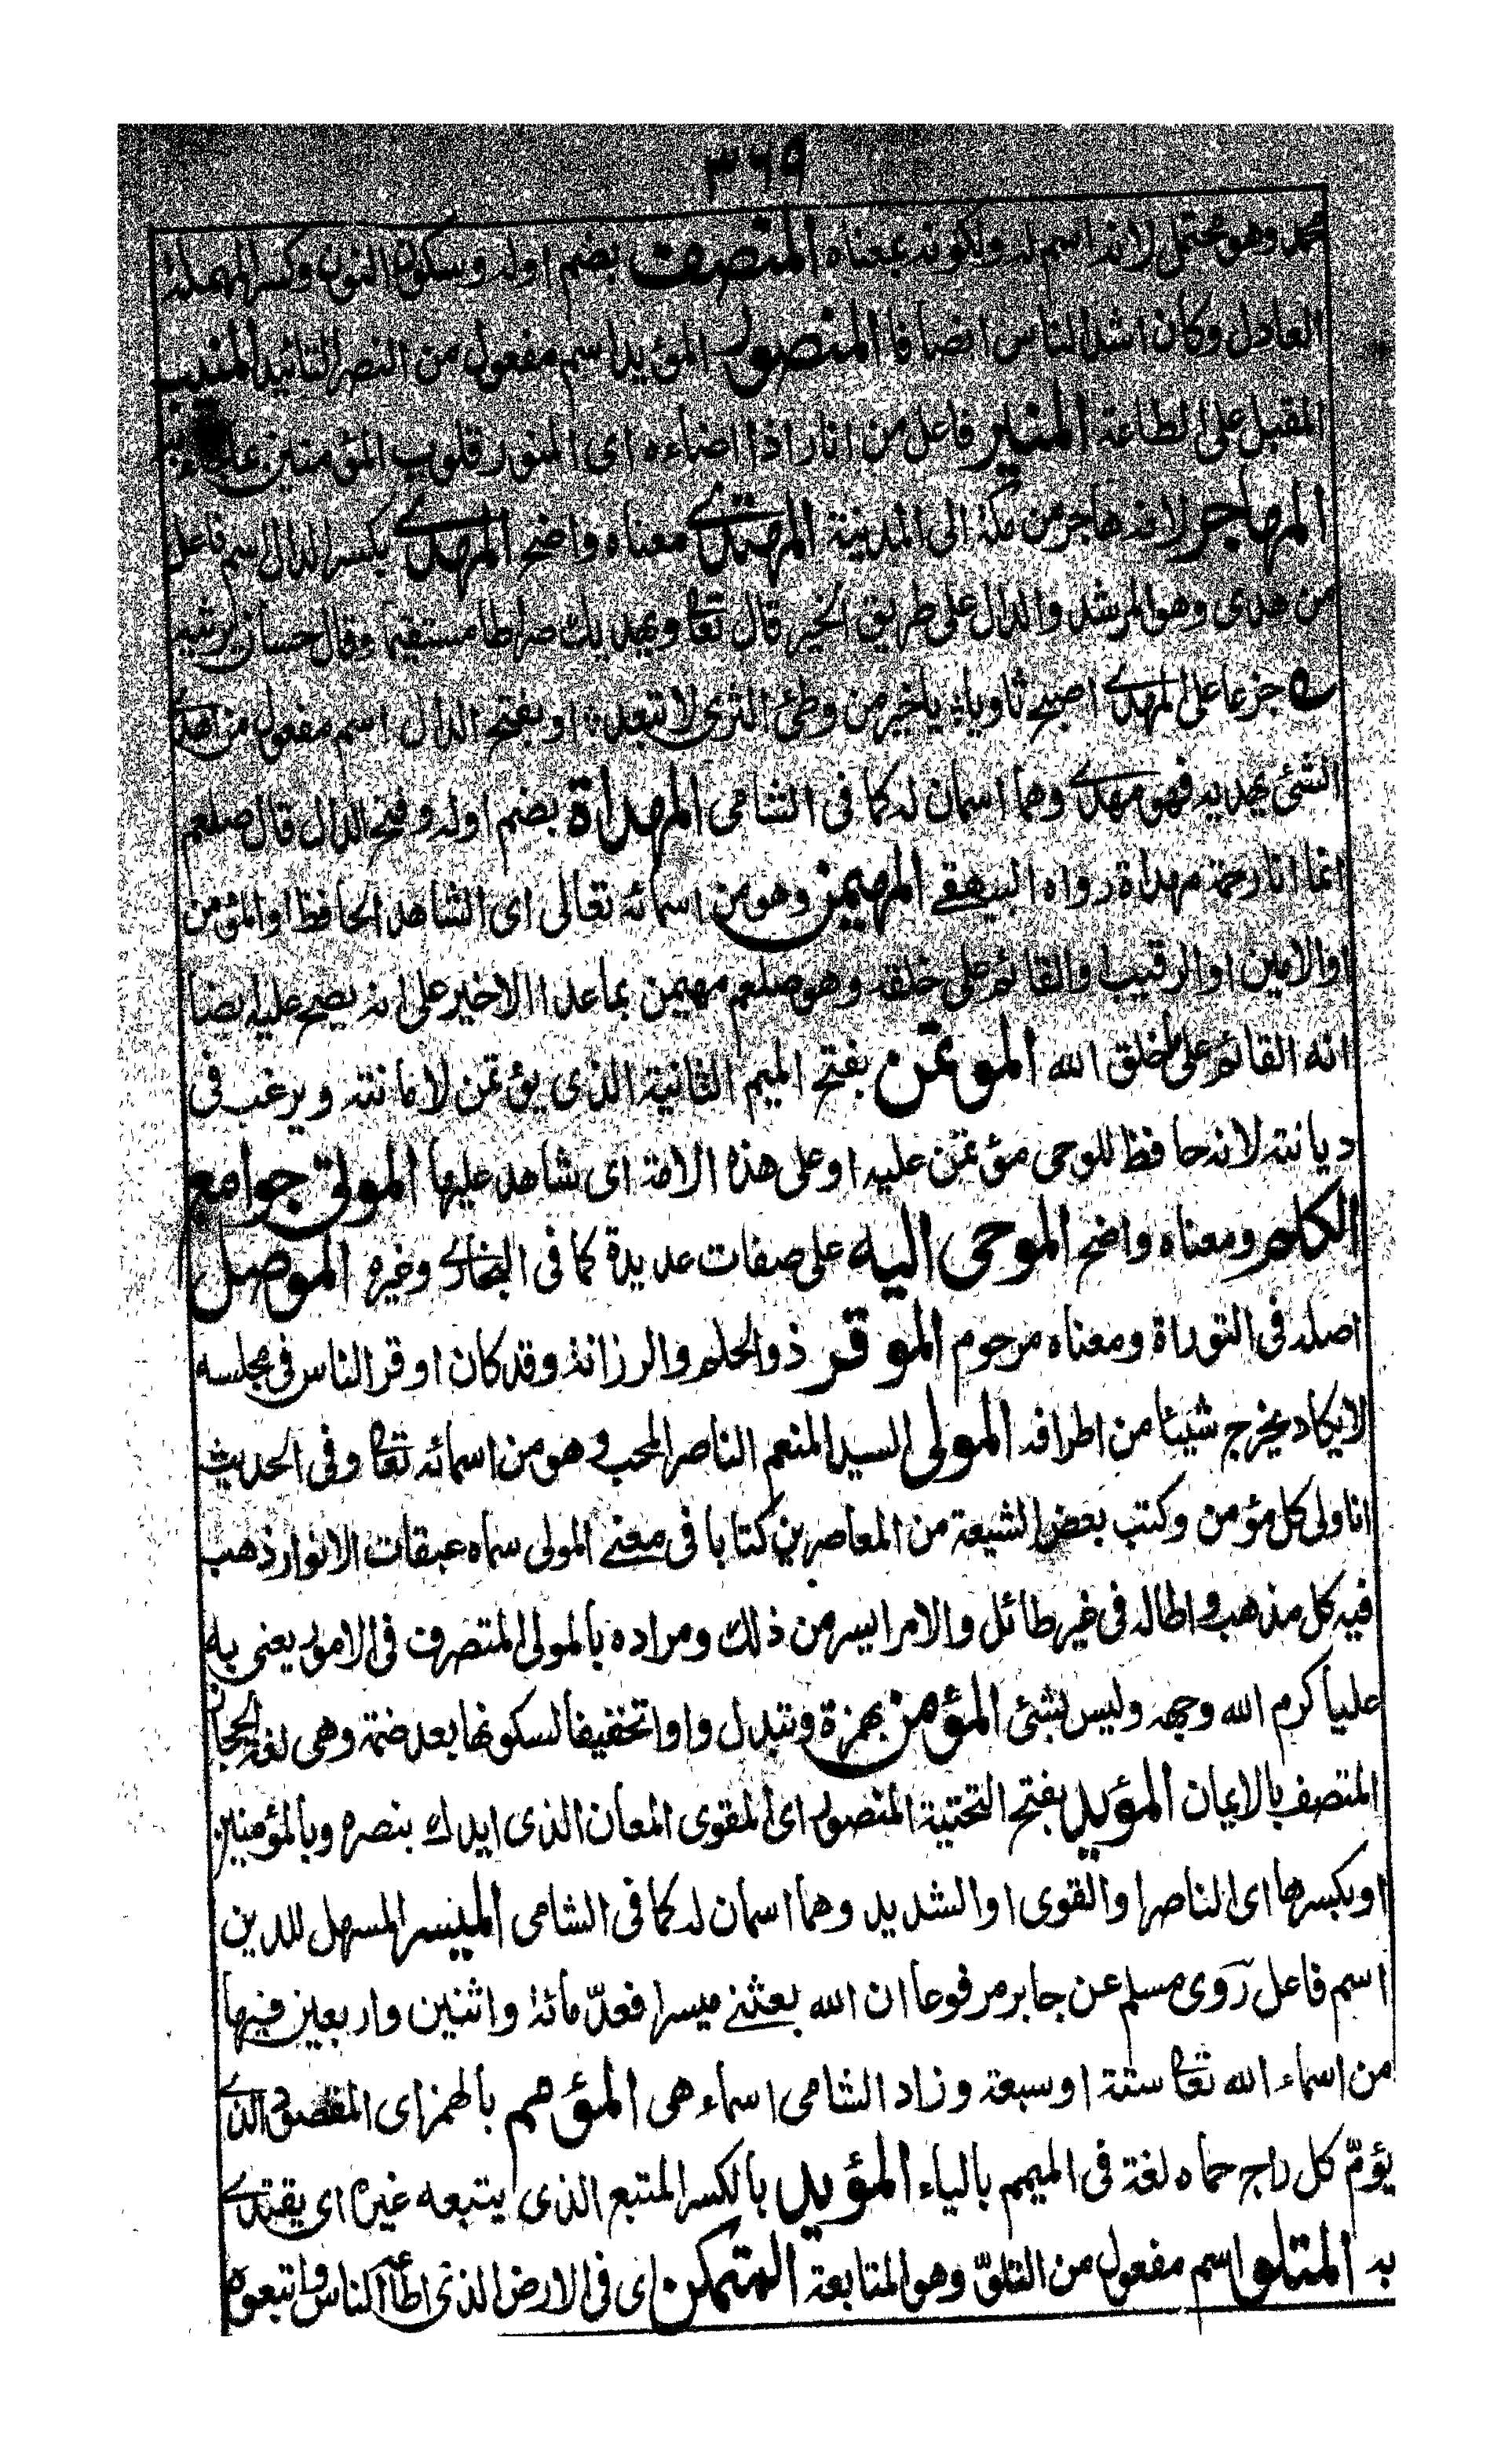 ٣٦٩
محمد وهو محتمل لانه اسم له ولكونه بمعناه المنصف بضم اوله وسكون النون وكسر المهملة
العادل وكان اشد الناس انصافا المنصور المؤيد اسم مفعول من النصر التائيد المنيب
المقبل على الطاعة المنير فاعل من انار اذا اضاءه اى المنور قلوب المؤمنين
المهاجر لانه هاجر من مكة الى المدينة المهتدى معناه واضح المهدى بكسر الدال اسم فاعل
من هدى وهو المرشد والدال على طريق الخير قال تعا ويهديك صراطا مستقيما وقال حسان يرثيه
جزعا على المهدى اصبح ثاويا يا خير من وطئ الثرى لا تبعد او بفتح الدال اسم مفعول من هدى
الشئ يهديه فهو مهدى وهما اسمان له كما فى الشامى المهداة بضم اوله وفتح الدال قال صلعم
انما انا رحمة مهداة رواه البيهقے المهيمن وهو من اسمائه تعالى اى الشاهد الحافظ او المؤمن
او الامين او الرقيب او القائم على خلقه وهو صلعم مهيمن بما عدا الاخير على انه يصح عليه ايضا
انه القائم على خلق الله الموتمن بفتح الميم الثانية الذى يؤتمن لامانته ويرغب فى
ديانته لانه حافظ للوحى مؤتمن عليه او على هذه الامة اى شاهد عليها الموتى جوامع
الكلم ومعناه واضح الموحى اليه على صفات عديدة كما فى البخارى وغيره الموصل
اصله فى التوراة ومعناه مرحوم الموقر ذو الحلم والرزانة وقد كان اوقر الناس فى مجلسه
لا يكاد يخرج شيئا من اطرافه المولى السيد المنعم الناصر المحب وهو من اسمائه تعا وفى الحديث
انا ولى كل مؤمن وكتب بعض الشيعة من المعاصرين كتابا فى معنے المولى سماه عبقات الانوار ذهب
فيه كل مذهب واطاله فى غير طائل والامر ايسر من ذلك ومراده بالمولى المتصرف فى الامور يعنى به
عليا كرم الله وجهه وليس بشئ المؤمن بهمزة وتبدل واوا تخفيفا لسكونها بعد ضمة وهى لغة الحجاز
المتصف بالايمان المؤيد بفتح التحتية المنصور اى المقوى المعان الذى ايدك بنصره وبالمؤمنين
او بكسرها اى الناصر او القوى او الشديد وهما اسمان له كما فى الشامى الميسر المسهل للدين
اسم فاعل روى مسلم عن جابر مرفوعا ان الله بعثنے ميسرا فعدّ مائة واثنين واربعين فيها
من اسماء الله تعا ستة او سبعة وزاد الشامى اسماء هى المؤمم بالهمز اى المقصود الذى
يؤمّ كل راج حماه لغة فى الميمم بالياء المؤيد بالكسر المتبع الذى يتبعه غيره اى يقتدى
به المتلو اسم مفعول من التلوّ وهو المتابعة المتمكن اى فى الارض الذى اطاعه الناس واتبعوه